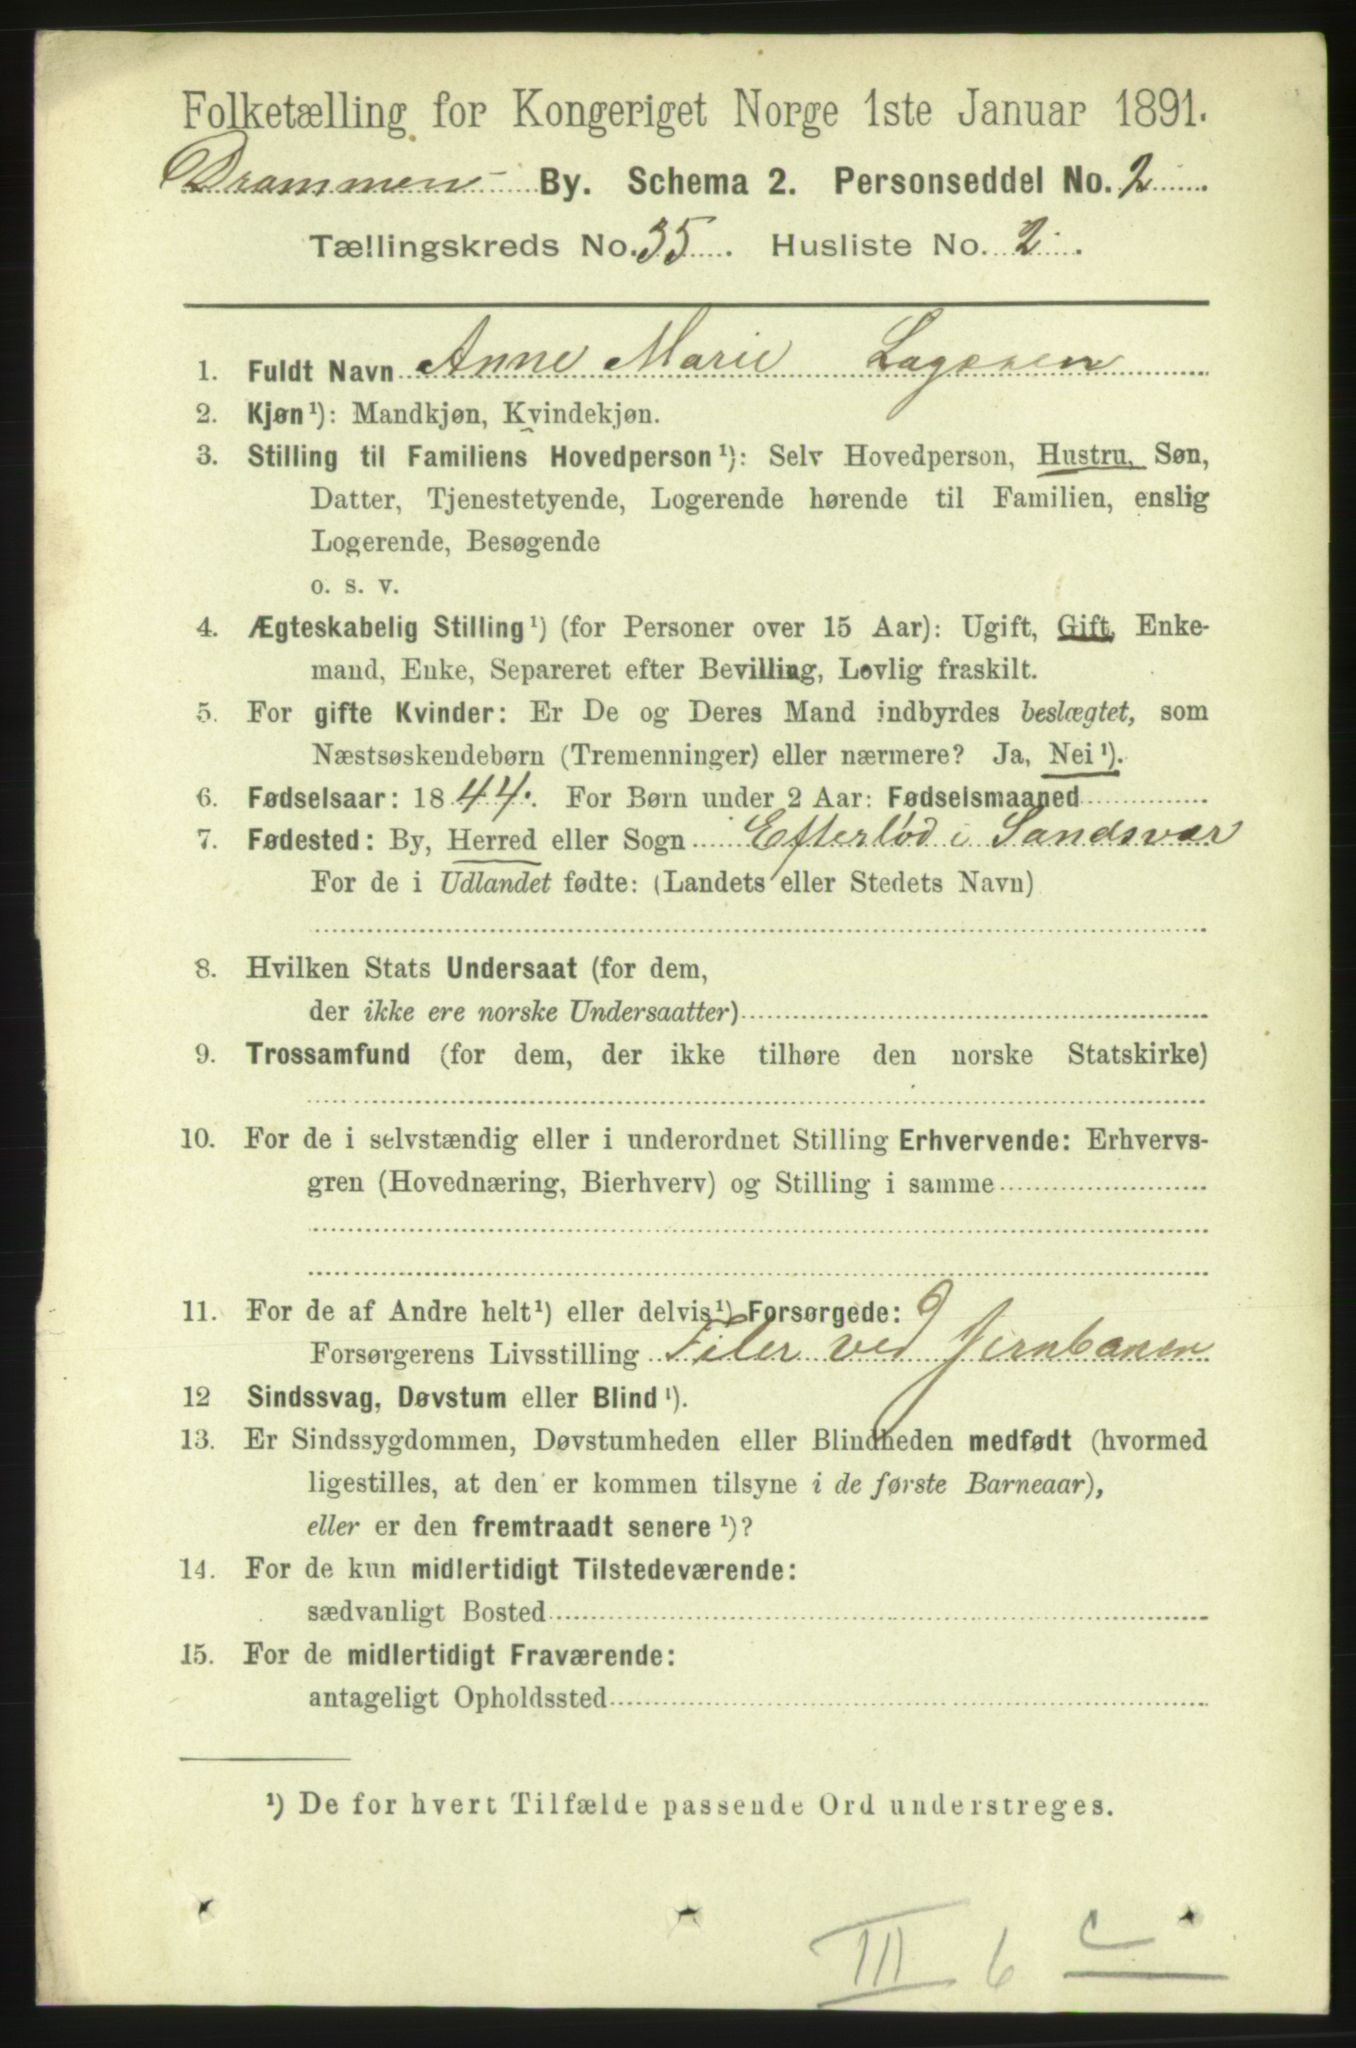 Folketælling for Kongeriget Norge 1ste Januar 1891.
Drammen By. Schema 2. Personseddel No. 2
Tællingskreds No. 35. Husliste No. 2.
1. Fuldt Navn Anne Marie
2. Kjøn ¹): Mandkjøn, Kvindekjøn.
3. Stilling til Familiens Hovedperson ¹): Selv Hovedperson, Hustru, Søn,
Datter, Tjenestetyende, Logerende hørende til Familien, enslig
Logerende, Besøgende
o. s. v.
4. Ægteskabelig Stilling ¹) (for Personer over 15 Aar): Ugift, Gift, Enke-
mand, Enke, Separeret efter Bevilling, Lovlig fraskilt.
5. For gifte Kvinder: Er De og Deres Mand indbyrdes beslægtet, som
Næstsøskendebørn (Tremenninger) eller nærmere? Ja, Nei ¹).
6. Fødselsaar: 1844. For Børn under 2 Aar: Fødselsmaaned
7. Fødested: By, Herred eller Sogn Efterlød i Sandsvær
For de i Udlandet fødte: (Landets eller Stedets Navn)
8. Hvilken Stats Undersaat (for dem,
der ikke ere norske Undersaatter)
9. Trossamfund (for dem, der ikke tilhøre den norske Statskirke)
10. For de i selvstændig eller i underordnet Stilling Erhvervende: Erhvervs-
gren (Hovednæring, Bierhverv) og Stilling i samme
11. For de af Andre helt ¹) eller delvis ¹) Forsørgede:
Forsørgerens Livsstilling Filer ved Jernbanen
12 Sindssvag, Døvstum eller Blind ¹).
13. Er Sindssygdommen, Døvstumheden eller Blindheden medfødt (hvormed
ligestilles, at den er kommen tilsyne i de første Barneaar),
eller er den fremtraadt senere ¹)?
14. For de kun midlertidigt Tilstedeværende:
sædvanligt Bosted
15. For de midlertidigt Fraværende:
antageligt Opholdssted
¹) De for hvert Tilfælde passende Ord understreges.
III 6 c